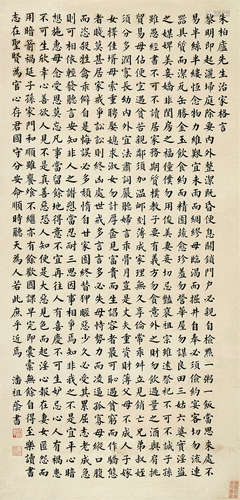 朱柏廬先生治家格言
黎明即起灑掃庭除要內外整潔既昏便息關鎖門戶必親自檢點一粥一飯當思來處不
易半絲半縷恒念物力維艱宜未雨而綢繆毋臨渴而掘井自奉必須儉約宴客切勿留連
器具質而潔瓦缶勝金玉飲食約而精園蔬愈珍羞勿營華屋勿謀良田三姑六婆實淫盜
之媒婢美妾嬌非閨房之福奴僕勿用俊美妻妾切忌艷妝祖宗雖遠祭祀不可不誠子孫
雖愚經書不可不讀居身務期質樸教子要有義方勿貪意外之財勿飲過量之酒與肩挑
貿易毋佔便宜見貧苦親鄰須加溫卹刻薄成家理無久享倫常乖舛立見消亡兄弟叔姪
須分多潤寡長幼內外宜法肅辭嚴聽婦言乖骨肉豈是丈夫重貲財薄父母不成人子嫁
女擇佳婿毋索重聘娶媳求淑女勿計厚奩見富貴而生諂容者最可恥遇貧窮而作驕態
者賤莫甚居家戒爭訟訟則終凶處世戒多言言多必失毋恃勢力而凌逼孤寡毋貪口腹
而恣殺牲禽乖僻自是悔誤必多頹惰自甘家園終替狎暱惡少久必受其累屈志老成急
則可相依輕聽發言安知非人之譖愬當忍耐三思因事相爭安知非我之不是宜平心暗
想施惠毋念受恩莫忘凡事當留餘地得意不宜再往人有喜慶不可生妒忌心人有禍患
不可生欣幸心善欲人見不是真善惡恐人知便是大惡見色而起淫心報在妻女匿怨而
用暗箭禍延子孫家門和順雖饔飧不繼亦有餘歡國課早完即囊橐無餘自得至樂讀書
志在聖賢為官心存君國守分安命順時聽天為人若此庶乎近焉 潘祖蔭書